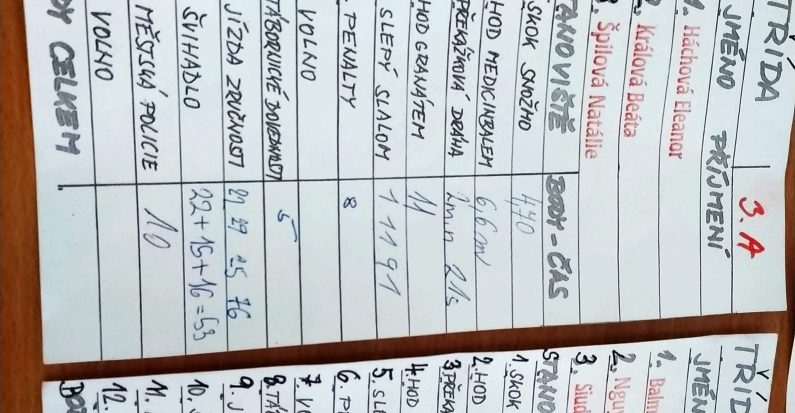 TŘÍDA 3.A
JMÉNO PŘÍJMENÍ
1. Háchová Eleanor
2. Králová Beáta
3. Špilová Natálie
TANOVIŠTĚ BODY - ČAS
SKOK SNOŽMO 470
HOD MEDICINBALEM 6,6m
PŘEKÁŽKOVÁ DRÁHA 2min 21s
HOD GRANÁTEM 11
SLEPÝ SLALOM 1 1 1 9 1
PENALTY 8
VOLNO
TÁBORNICKÉ DOVEDNOSTI 5
JÍZDA ZRUČNOSTI 25 76
ŠVIHADLO 22+15+16=53
MĚSTSKÁ POLICIE 10
VOLNO
DY CELKEM
TŘÍ
JMÉN
1. Baln
2. Ngu
3. Siud
STANO
1. SKOK
2. HOD
3. PŘEKÁ
4. HOD
5. SLE
6. PE
7. VO
8. TÁ
9. J
10.
11.
12.
BOD